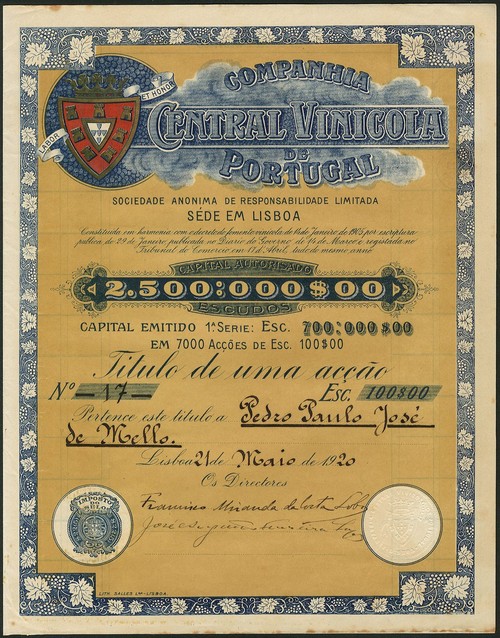 LABOR
ET HONOR
COMPANHIA
CENTRAL VINICOLA
DE
PORTUGAL
SOCIEDADE ANONIMA DE RESPONSABILIDADE LIMITADA
SÉDE EM LISBOA
Constituida em harmonia com o decreto de fomento vinicola de 14 de Janeiro de 1905 por escriptura
publica de 29 de Janeiro, publicada no Diario do Governo de 14 de Março e registada no
Tribunal do Comercio em 17 d'Abril, tudo do mesmo anno
CAPITAL AUTORISADO
2.500:000$00
ESCUDOS
CAPITAL EMITIDO 1ª SERIE: ESC. 700:000$00
EM 7000 ACÇÕES DE ESC. 100$00
Titulo de uma acção
Nº 17 Esc. 100$00
Pertence este titulo a Pedro Paulo José
de Mello.
Lisboa 21 de Maio de 1920
Os Directores
Francisco Miranda da Costa Lobo
José
IMPOSTO
DO
SELO
LITH. SALLES LDA - LISBOA.